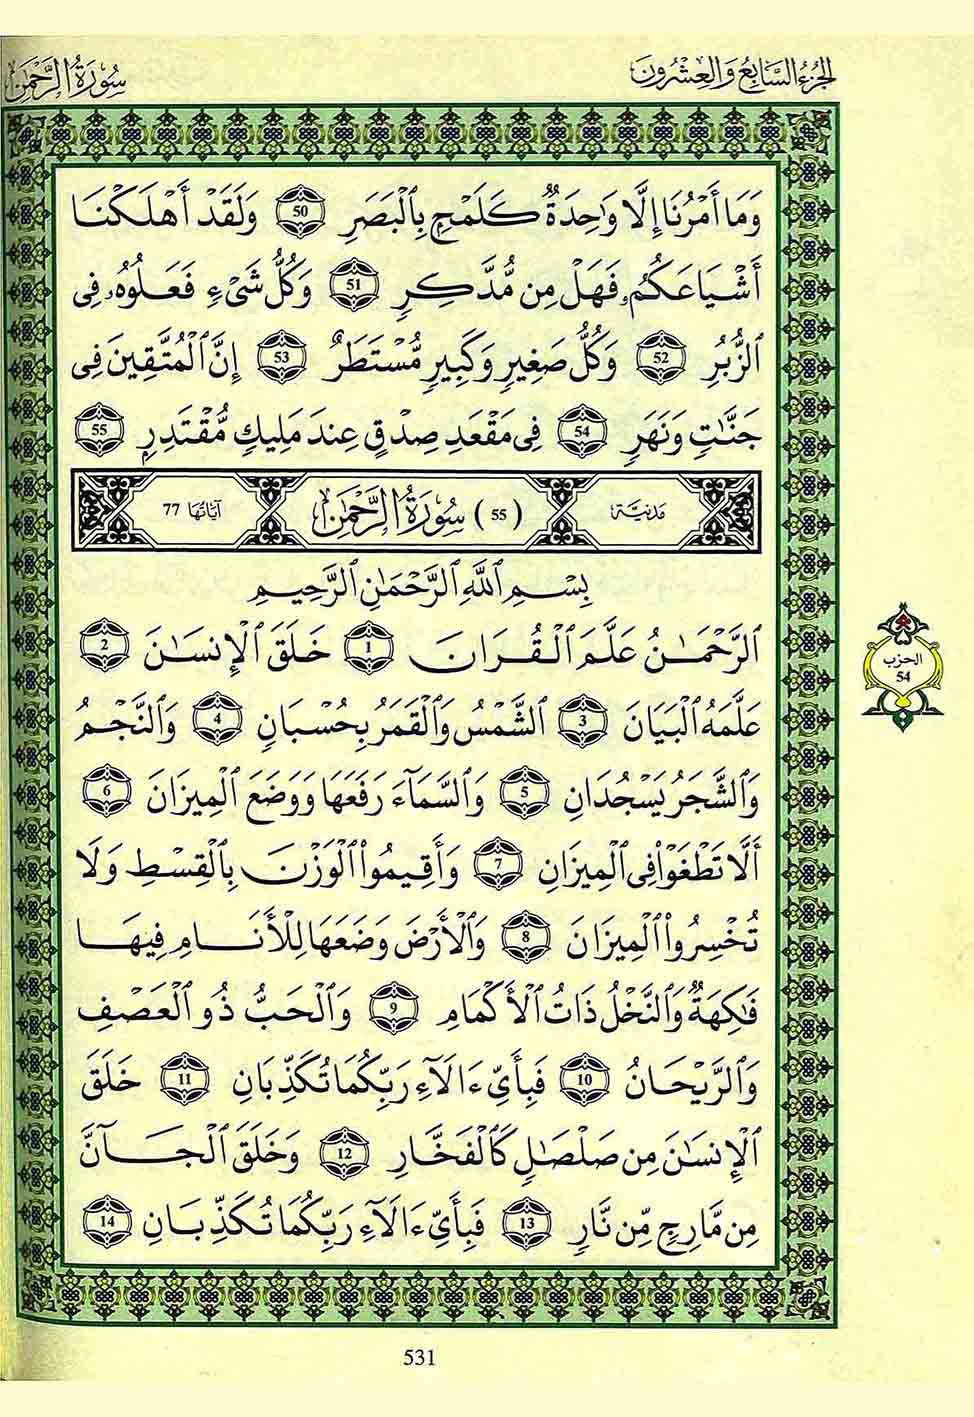 الجزء السابع والعشرون
سورة الرحمن
وَمَا أَمْرُنَا إِلَّا وَٰحِدَةٌ كَلَمْحٍ بِٱلْبَصَرِ 50 وَلَقَدْ أَهْلَكْنَا
أَشْيَاعَكُمُۥ فَهَلْ مِن مُّدَّكِرٍ 51 وَكُلُّ شَىْءٍ فَعَلُوهُۥ فِى
ٱلزُّبُرِ 52 وَكُلُّ صَغِيرٍ وَكَبِيرٍ مُّسْتَطَرٌ 53 إِنَّ ٱلْمُتَّقِينَ فِى
جَنَّٰتٍ وَنَهَرٍ 54 فِى مَقْعَدِ صِدْقٍ عِندَ مَلِيكٍ مُّقْتَدِرٍۭ 55
مدنية (55) سورة الرحمن آياتها 77
بِسْمِ ٱللَّهِ ٱلرَّحْمَٰنِ ٱلرَّحِيمِ
ٱلرَّحْمَٰنُ عَلَّمَ ٱلْقُرَانَ 1 خَلَقَ ٱلْإِنسَٰنَ 2
عَلَّمَهُ ٱلْبَيَانَ 3 ٱلشَّمْسُ وَٱلْقَمَرُ بِحُسْبَانٍ 4 وَٱلنَّجْمُ
وَٱلشَّجَرُ يَسْجُدَانِ 5 وَٱلسَّمَآءَ رَفَعَهَا وَوَضَعَ ٱلْمِيزَانَ 6
أَلَّا تَطْغَوْا۟ فِى ٱلْمِيزَانِ 7 وَأَقِيمُوا۟ ٱلْوَزْنَ بِٱلْقِسْطِ وَلَا
تُخْسِرُوا۟ ٱلْمِيزَانَ 8 وَٱلْأَرْضَ وَضَعَهَا لِلْأَنَامِ فِيهَا
فَٰكِهَةٌ وَٱلنَّخْلُ ذَاتُ ٱلْأَكْمَامِ 9 وَٱلْحَبُّ ذُو ٱلْعَصْفِ
وَٱلرَّيْحَانُ 10 فَبِأَىِّ ءَالَآءِ رَبِّكُمَا تُكَذِّبَانِ 11 خَلَقَ
ٱلْإِنسَٰنَ مِن صَلْصَٰلٍ كَٱلْفَخَّارِ 12 وَخَلَقَ ٱلْجَآنَّ
مِن مَّارِجٍ مِّن نَّارٍ 13 فَبِأَىِّ ءَالَآءِ رَبِّكُمَا تُكَذِّبَانِ 14
الحزب
54
531